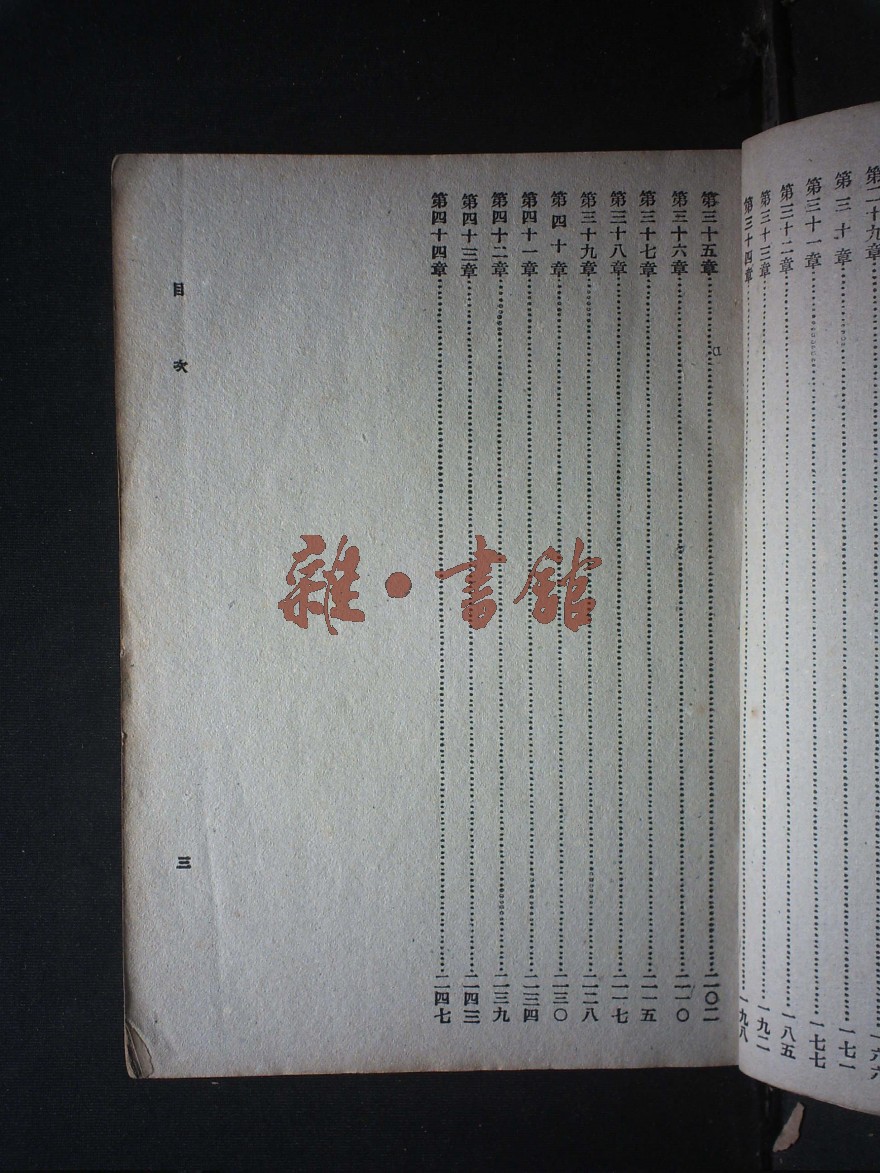 第二十九章 一六六
第三十章 一七一
第三十一章 一七七
第三十二章 一八五
第三十三章 一九二
第三十四章 一九八
第三十五章 二〇二
第三十六章 二一〇
第三十七章 二一五
第三十八章 二一七
第三十九章 二二八
第四十章 二三〇
第四十一章 二三四
第四十二章 二三九
第四十三章 二四三
第四十四章 二四七
目次
三
雜·書館